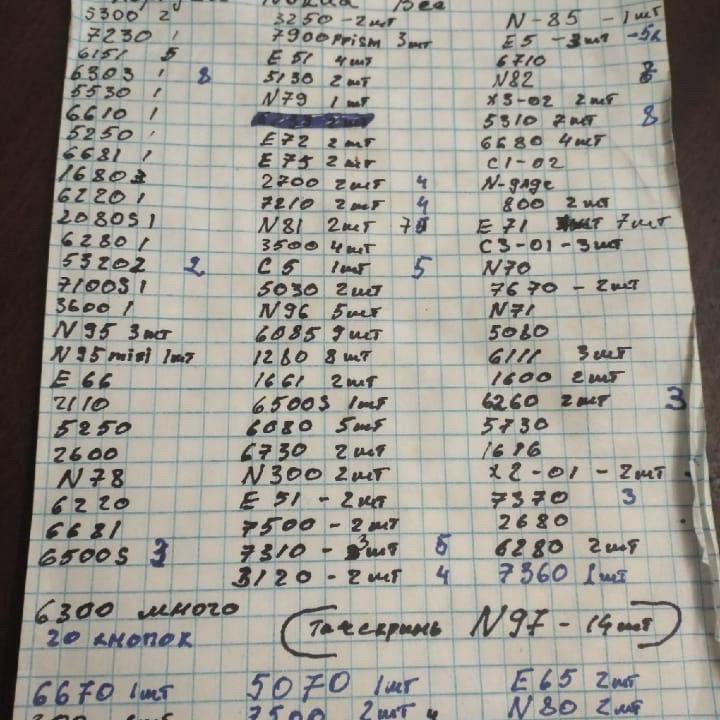 Nokia Все
5300 2
7230 1
6151 5
6303 1 8
5530 1
6610 1
5250 1
6681 1
1680 3
6220 1
2080S 1
6280 1
53202 2
7100S 1
3600 1
N95 3шт
N95 mini 1шт
E 66
2110
5250
2600
N78
6220
6681
6500S 3
3250 - 2шт
7900 Prism 3шт
E 51 4шт
5130 2шт
N79 1шт
E72 2шт
E75 2шт
2700 2шт 4
7210 2шт 4
N81 2шт
3500 4шт
C5 1шт 5
5030 2шт
N96 5шт
6085 9шт
1280 8шт
1661 2шт
6500S 1шт
6080 5шт
6730 2шт
N300 2шт
E 51 - 2шт
7500 - 2шт
7310 - 3шт 5
3120 - 2шт 4
N-85 - 1шт
E5 - 3шт
6710
N82
x3-02 2шт
5310 7шт 8
6680 4шт
C1-02
N-gage
800 2шт
E 71 7шт
C3-01 - 3шт
N70
7670 - 2шт
N71
5080
6111 3шт
1600 2шт
6260 2шт 3
5730
1686
x2-01 - 2шт
7370 3
2680
6280 2шт
7360 1шт
6300 много
20 кнопок
тачскринь N97 - 14шт
6670 1шт
5070 1шт
E65 2шт
7500 2шт 4
N80 2шт